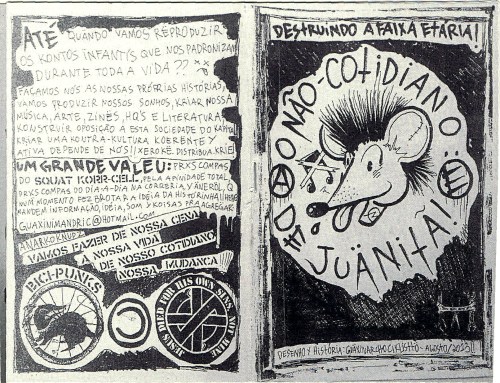 ATÉ QUANDO VAMOS REPRODUZIR
OS KONTOS INFANTYS QUE NOS PADRONIZAM
DURANTE TODA A VIDA??
FAÇAMOS NÓS AS NOSSAS PRÓPRIAS HISTÓRIAS,
VAMOS PRODUZIR NOSSOS SONHOS, KRIAR NOSSA
MÚSICA, ARTE, ZINES, HQ'S E LITERATURA,
KONSTRUIR OPOSIÇÃO A ESTA SOCIEDADE DO KAPITAL
KRIAR UMA KOUTRA-KULTURA KOERENTE Y
ATIVA DEPENDE DE NÓS! XEROKE. DISTRIBUA. KRIE
UM GRANDE VALEU: PRXS COMPAS
DO SQUAT KORR-CELL, PELA AFINIDADE TOTAL
PRXS COMPAS DO DIA-A-DIA NA CORRERIA, Y
NUM MOMENTO FEZ BROTAR A IDÉIA DA HISTORINHA!
MANDEM INFORMAÇÃO, IDÉIA, SOM Y KOISAS PRA AGREGAR:
GUAXINIMANDRIC@HOTMAIL.COM
ANARKOKNUPZ!
VAMOS FAZER DE NOSSA CENA
A NOSSA VIDA
DE NOSSO COTIDIANO
NOSSA MUDANÇA
BICI-PUNKS
JESUS DIED FOR HIS OWN SINS NOT MINE
DESTRUINDO A FAIXA ETÁRIA!
O NÃO-COTIDIANO...
DA JUÄNITA!
DESENHO Y HISTÓRIA- AGOSTO/2013!!